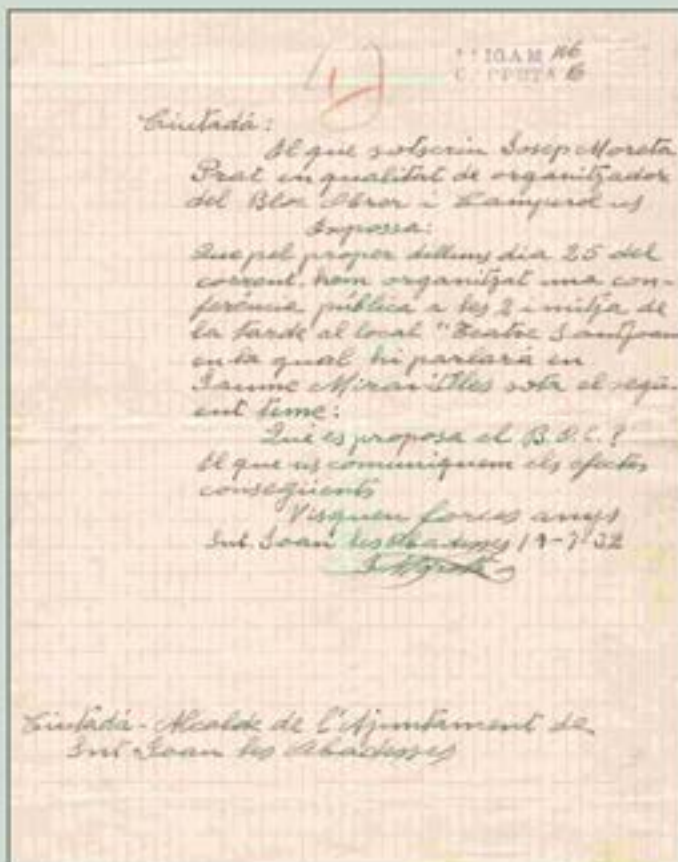 LLIGAM 116
CARPETA 16
Ciutadá:
El que sotscriu Josep Moreta
Prat en qualitat de organitzador
del Bloc Obrer i Camperol us
Expossa:
Que pel proper dilluns dia 25 del
corrent, hem organitzat una con-
ferència pública a les 2 i mitja de
la tarde al local "Teatre Santjoan
en la qual hi parlará en
Jaume Miravitlles sota el següi-
ent teme:
Qué es proposa el B.O.C.?
El que us comuniquem els efectes
consegüents
Visquen forces anys
Snt. Joan les Abadesses 19-7-32
J. Moreta
Ciutadá - Alcalde de l'Ajuntament de
Snt Joan les Abadesses